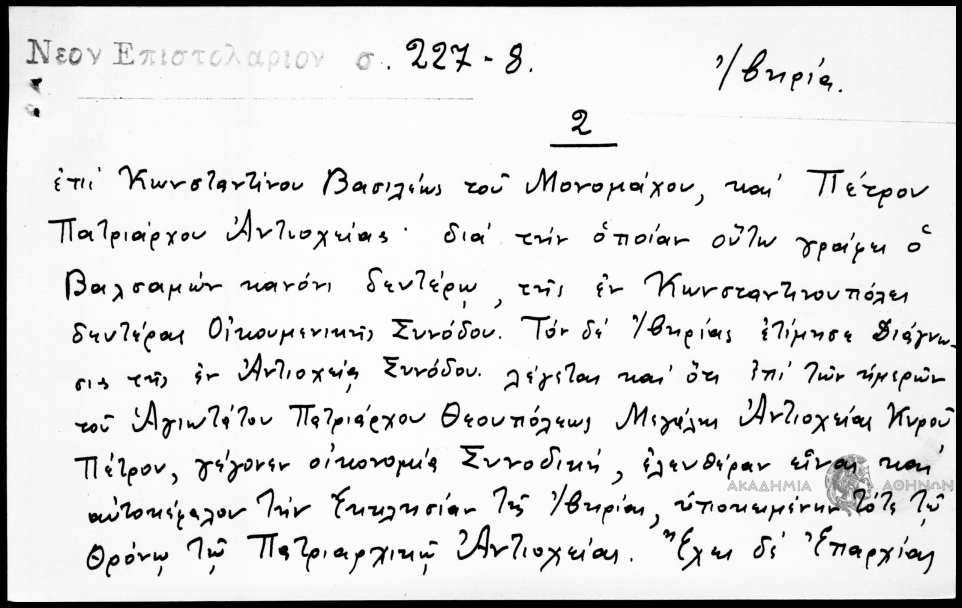 Νεον Επιστολαριον σ. 227-8.
Ἰβηρία.
2
ἐπί Κωνσταντίνου Βασιλέως τοῦ Μονομάχου, καί Πέτρου
Πατριάρχου Ἀντιοχείας· διά τήν ὁποίαν οὕτω γράφει ὁ
Βαλσαμών κανόνι δευτέρῳ, τῆς ἐν Κωνσταντινουπόλει
δευτέρας Οἰκουμενικῆς Συνόδου. Τόν δέ Ἰβηρίας ἐτίμησε Διάγνω-
σις τῆς ἐν Ἀντιοχείᾳ Συνόδου. λέγεται καί ὅτι ἐπί τῶν ἡμερῶν
τοῦ Ἁγιωτάτου Πατριάρχου Θεουπόλεως Μεγάλης Ἀντιοχείας Κυροῦ
Πέτρου, γέγονεν οἰκονομία Συνοδική, ἐλευθέραν εἶναι καί
αὐτοκέφαλον τήν Ἐκκλησίαν τῆς Ἰβηρίας, ὑποκειμένην τότε τῷ
Θρόνῳ τῷ Πατριαρχικῷ Ἀντιοχείας. Ἔχει δέ Ἐπαρχίας
ΑΚΑΔΗΜΙΑ ΑΘΗΝΩΝ